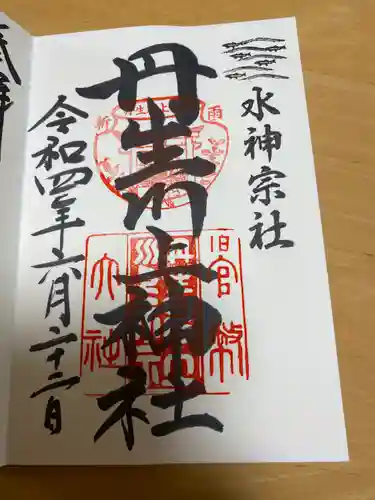 水神宗社
丹生川上神社
令和四年六月二十二日
旧官幣
大社